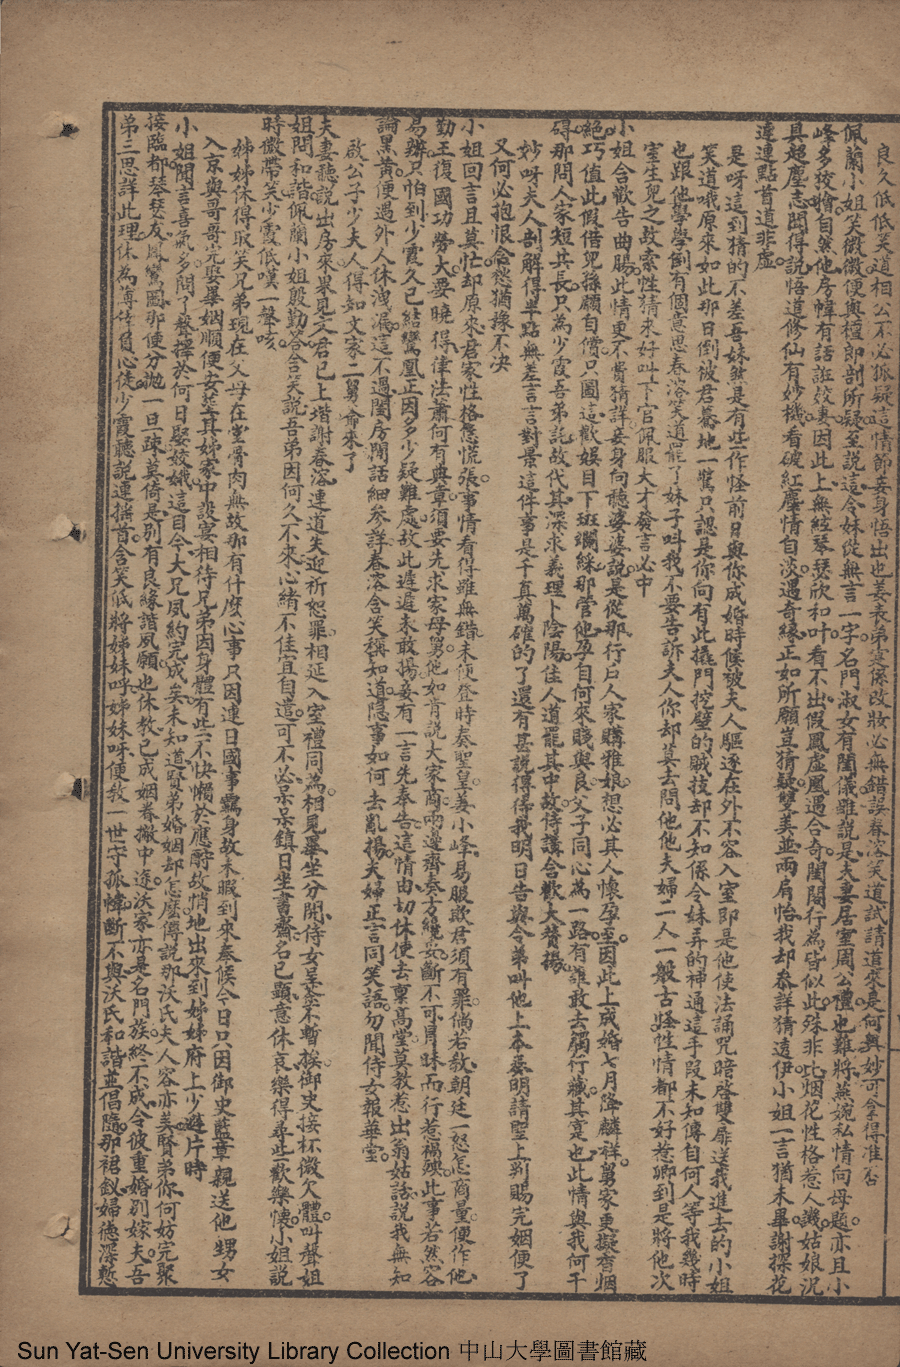 良久低低笑道相公不必狐疑這情節妾身悟出也姜表弟定係改妝必無錯誤春溶笑道試請道來是何奧妙可拿得准否
佩蘭小姐笑微微便與檀郎剖所疑至說這令妹從無言一字名門淑女有閨儀雖說是夫妻居室周公禮也難將燕婉私情向母題亦且小
峰多狡獪自然他房幃有話誑姣妻因此上無絃琴瑟欣和叶看不出假鳳虛凰遇合奇閨閫行為皆似此殊非比烟花性格惹人譏姑娘況
具超塵志聞得說悟道修仙有妙機看破紅塵情自淡遇奇緣正如所願豈猜疑雙美並兩肩怡我却參詳猜透伊小姐一言猶未畢謝探花
連連點首道非虛
是呀這到猜的不差吾妹然是有些作怪前日與你成婚時候被夫人驅逐在外不容入室即是他使法誦咒暗啓雙扉送我進去的小姐
笑道哦原來如此那日倒被君驀地一驚只認是你向有此撬門挖壁的賊技却不知係令妹弄的神通這手段未知傳自何人等我幾時
也跟他學學倒有個意思春溶笑道罷了妹子叫我不要告訴夫人你却莫去問他他夫婦二人一般古怪性情都不好惹卿到是將他次
室生兒之故索性猜來好叫下官佩服大才發言必中
小姐合歡告曲腸此情更不費猜詳妾身向聽婆婆說是從那行戶人家購雅娘想必其人懷孕至因此上成婚七月降麟祥舅家更擬香烟
絕巧值此假借兒孫願自償只圖這歡娛目下班斕綵那管他孕自何來賤與良父子同心為一路有誰敢去觸行藏其寔也此情與我何干
碍那問人家短共長只為少霞吾弟託故代其深求義理卜陰陽佳人道罷其中故侍講合歡大贊揚
妙呀夫人剖解得半點無差言言對景這件事是千真萬確的了還有甚說得待我明日告與令弟叫他上本奏明請聖上別賜完姻便了
又何必抱恨含愁猶豫不決
小姐回言且莫忙却原來君家性格慜慌張事情看得雖無錯未便登時奏聖皇姜小峰易服欺君須有罪倘若教朝廷一怒怎商量便作他
勤王復國功勞大要曉得律法蕭何有典章須要先求家母舅他如肯說大家商兩邊齊奏方纔妥斷不可冒昧而行惹禍殃此事若然容
易辦只怕到少霞久已結鸞凰正因多少疑難處故此遲遲未敢揚妾有一言先奉告這情由切休便去稟高堂莫教惹出翁姑話說我無知
論黑黃便遇外人休洩漏這不過閨房閒話細參詳春溶含笑稱知道隱事如何去亂揚夫婦正言同笑語勿聞侍女報華堂
啟公子少夫人得知文家二舅爺來了
夫妻聽說出房來果見文君已上堦謝春溶連道失迎祈恕罪相延入室禮同為相見畢坐分開侍女呈茶不暫挨御史接杯微欠體叫聲姐
姐問和諧佩蘭小姐殷勤答含笑說吾弟因何久不來心緒不佳宜自遣可不必呆呆鎮日坐書齋名已顯意休哀樂得尋些歡樂懷小姐說
時微帶笑少霞低嘆一聲咳
姊姊休得取笑兄弟現在父母在堂骨肉無故那有什麽心事只因連日國事羈身故未暇到來奉候今日只因御史藍章親送他甥女
入京與哥哥完娶畢姻順便安葬其姊家中設宴相待兄弟因身體有些不快懶於應酧故悄地出來到姊姊府上少避片時
小姐聞言喜氣多問了聲擇於何日娶姣娥這自今大兄夙約完成矣未知道賢弟婚姻却怎麽傳說那沃氏夫人容亦美賢弟你何妨完聚
接臨都琴瑟友鳳鸞圖那便分拋一旦疎莫倚是別有良緣諧夙願也休教已成姻眷撇中途沃家亦是名門族終不成令彼重婚別嫁夫吾
弟三思詳此理休為薄倖負心徒少霞聽說連搖首含笑低將姊妹呼姊妹呀便教一世守孤幃斷不與沃氏和諧並倡隨那裙釵婦德深慙
Sun Yat-Sen University Library Collection 中山大學圖書館藏